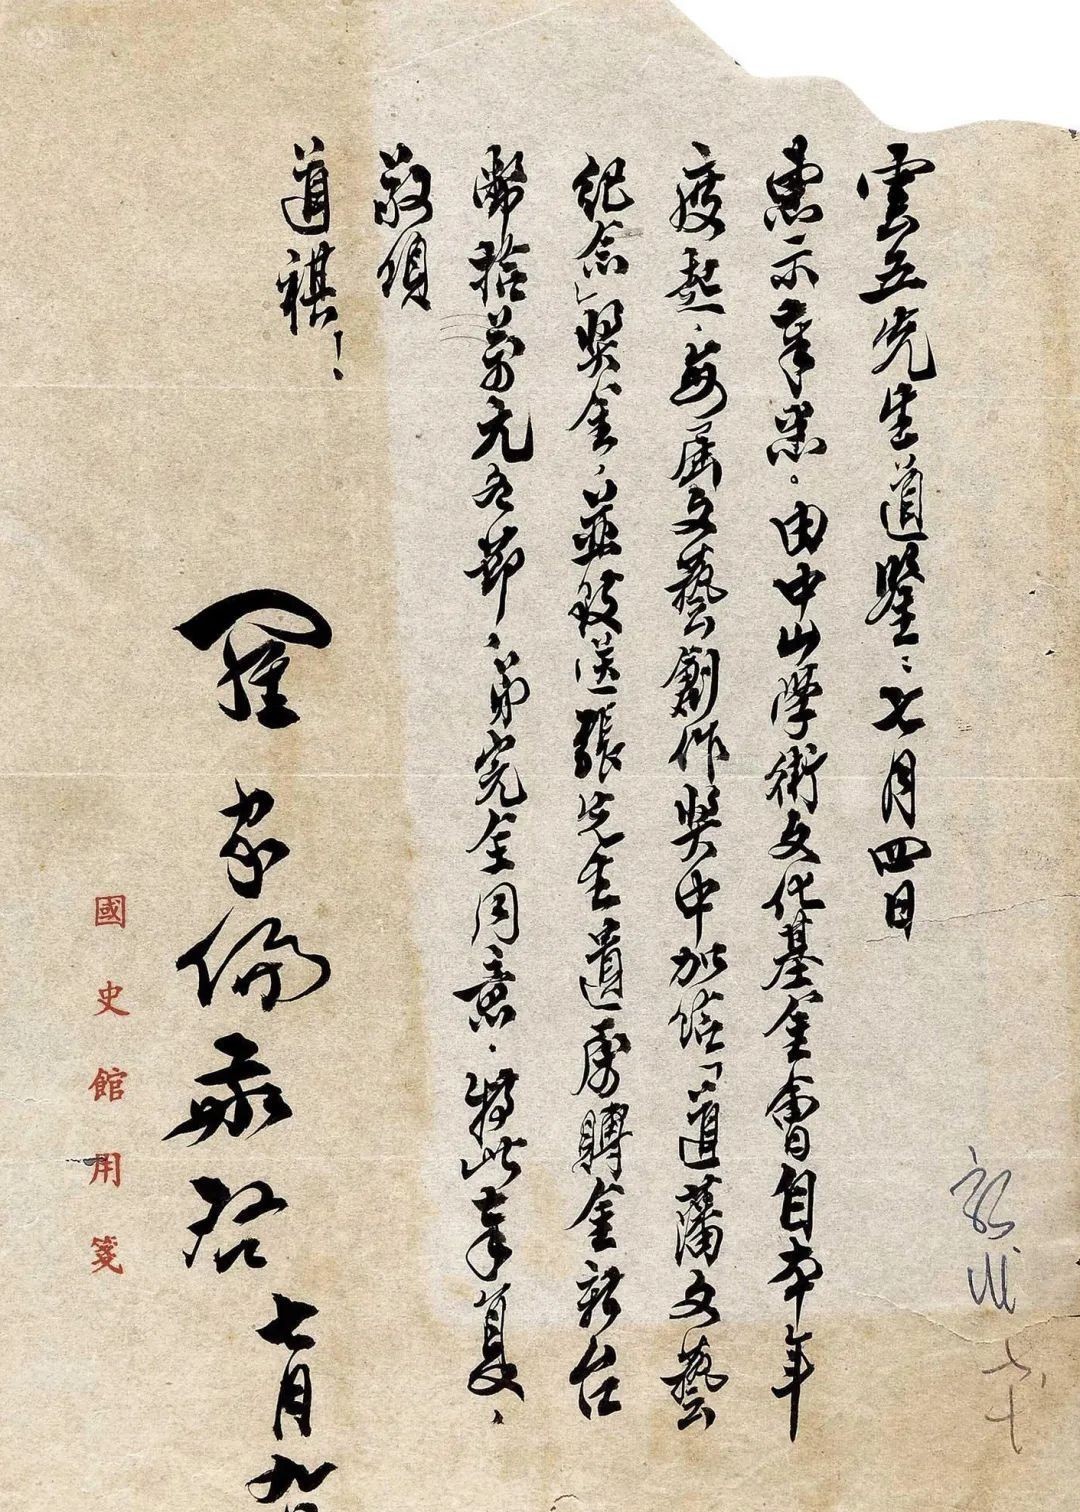 雲五先生道鑒：七月四日
惠示奉悉。由中山學術文化基金會自本年
度起，每届文藝創作獎中加設「道藩文藝
紀念」獎金，並致送張先生遺屬賻金新台
幣拾萬元各節，弟完全同意，特此奉复，
敬頌
道祺！
羅家倫敬啓 七月九
國史館用箋